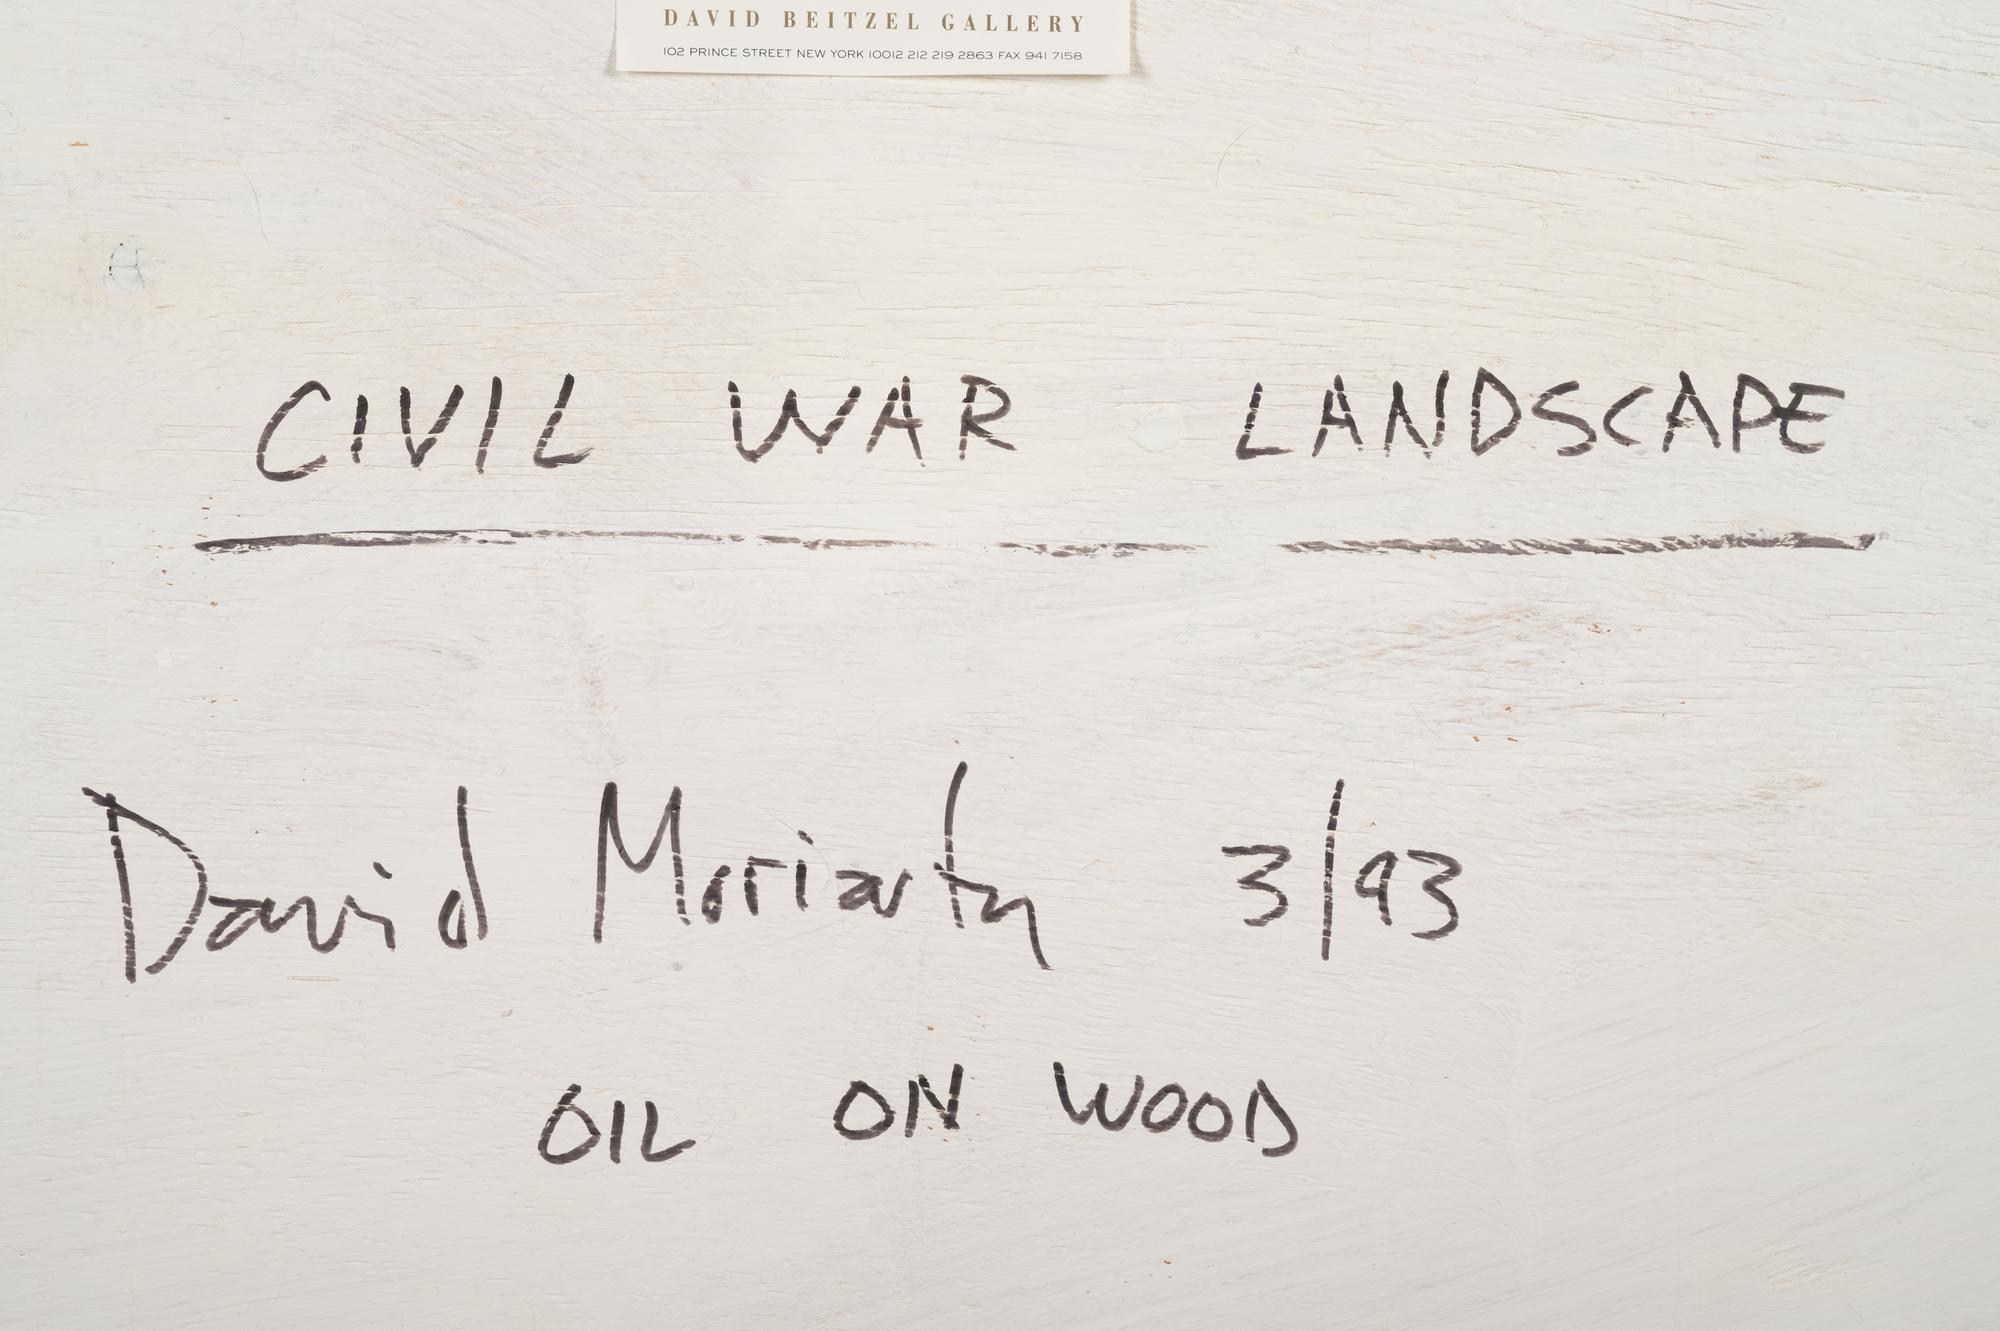 DAVID BEITZEL GALLERY
102 PRINCE STREET NEW YORK 10012 212 219 2863 FAX 941 7158
CIVIL WAR LANDSCAPE
David Moriarty 3/93
OIL ON WOOD